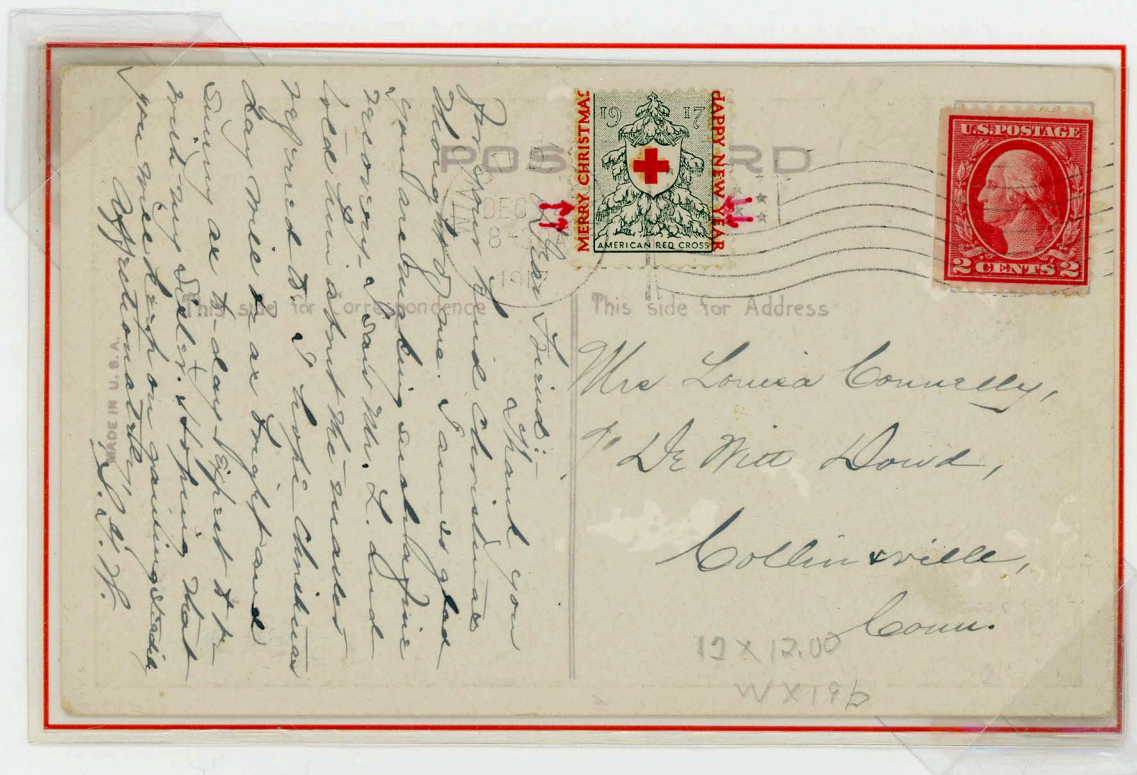 POST CARD
1917
MERRY CHRISTMAS
HAPPY NEW YEAR
AMERICAN RED CROSS
U.S. POSTAGE
2 CENTS 2
DEC
8-
1917
This side for Correspondence
This side for Address
MADE IN U.S.A.
Dear Friend:-
Thank you
for your kind Christmas
thought of me. I am so glad
you are making such a fine
recovery. I saw Mr. L. and
told him about the matter
referred to. I hope Christmas
Day will be as bright and
sunny as to-day. Expect to be
with my Sister. Hoping that
you will keep on gaining steadily
Affectionately
Mrs Louisa Connelly,
℅ De Witt Dowd,
Collinsville,
Conn.
12 X 12.00
W X 19